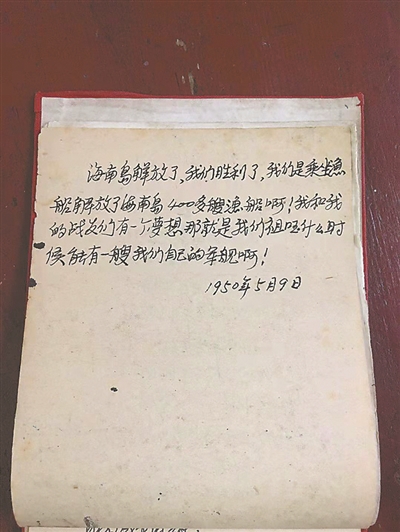 海南岛解放了，我们胜利了，我们是乘坐渔
船解放了海南岛400多艘渔船啊！我和我
的战友们有一个夢想那就是我们祖国什么时
候能有一艘我们自己的军舰啊！
1950年5月9日